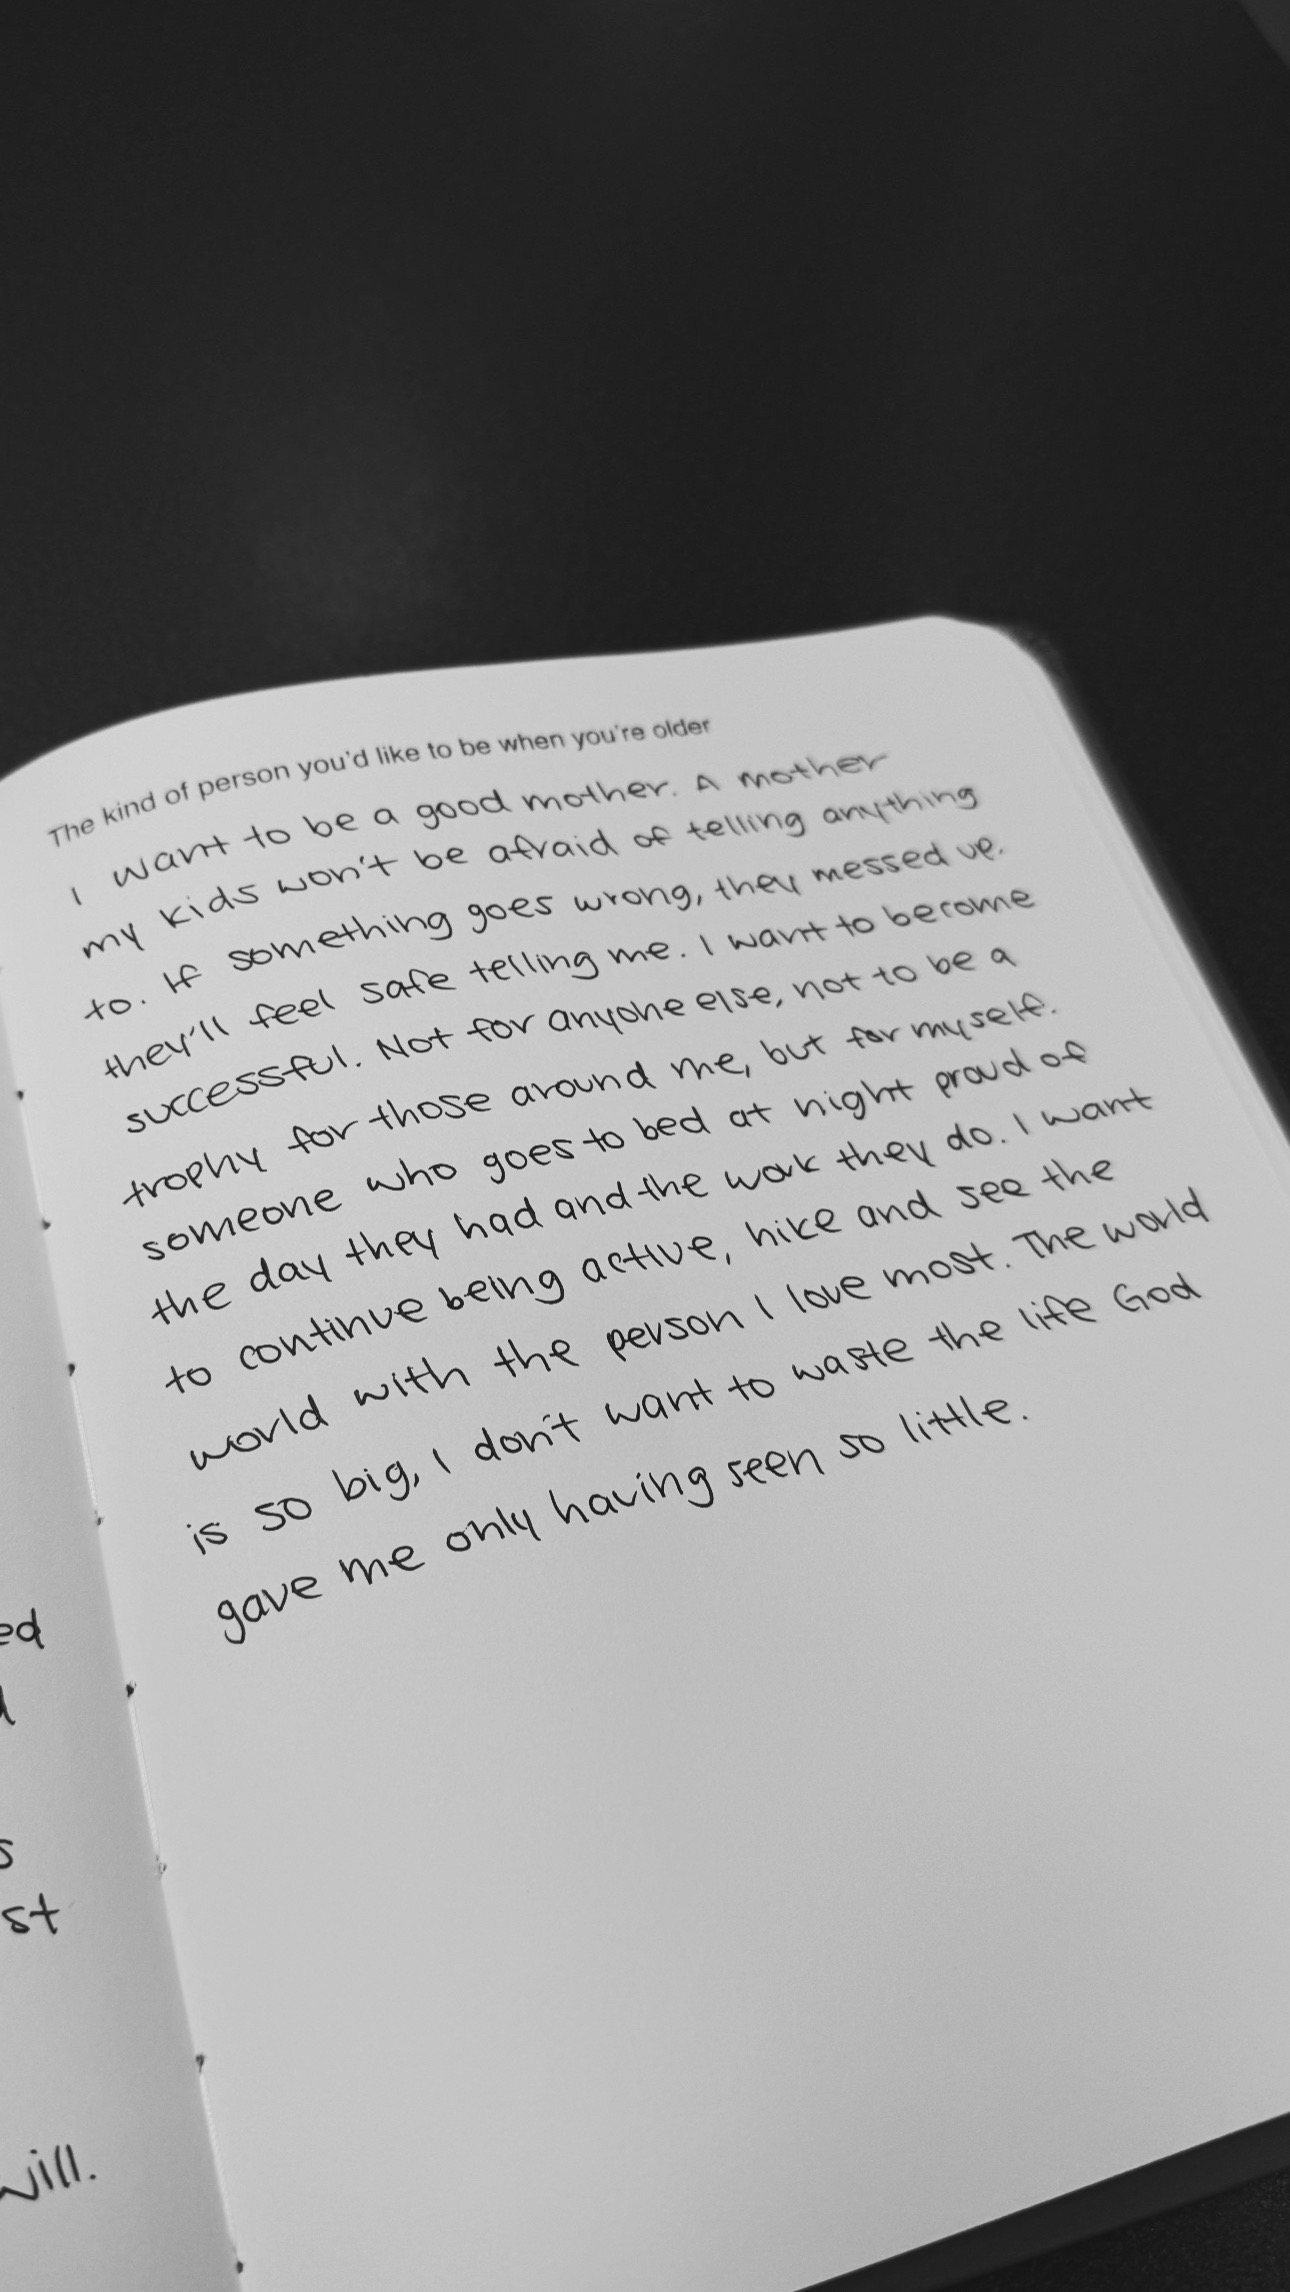 The kind of person you'd like to be when you're older
I want to be a good mother. A mother
my kids won't be afraid of telling anything
to. If something goes wrong, they messed up.
they'll feel safe telling me. I want to become
successful. Not for anyone else, not to be a
trophy for those around me, but for myself.
someone who goes to bed at night proud of
the day they had and the work they do. I want
to continue being active, hike and see the
world with the person I love most. The world
is so big, I don't want to waste the life God
gave me only having seen so little.
ed
s
st
will.